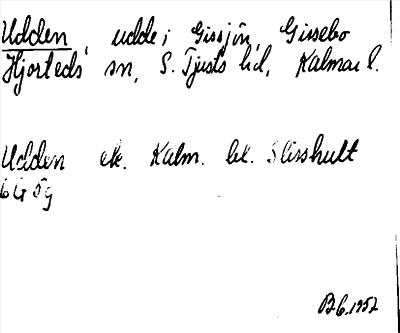 Udden udde i Gissjön, Gissebo
Hjorteds sn, S. Tjusts hd, Kalmar l.
Udden ek. Kalm. bl. Slisshult
6G 5g
B.G. 1952